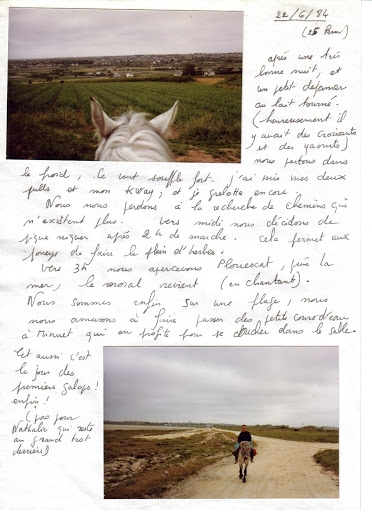 22/6/84
(25 km)
après une très
bonne nuit, et
un petit déjeuner
au lait tourné.
(heureusement il
y avait des croissants
et des yaourts)
nous partons dans
le froid, le vent souffle fort. j'ai mis mes deux
pulls et mon Kway, et je grelotte encore.
Nous nous perdons à la recherche de chemins qui
n'existent plus. Vers midi nous décidons de
pique niquer après 2h de marche. Cela permet aux
poneys de faire le plein d'herbes.
Vers 3h nous apercevons Plouescat, puis la
mer, le moral revient (en chantant).
Nous sommes enfin sur une plage, nous
nous amusons à faire passer des petits cours d'eau
à Minuet qui en profite pour se coucher dans le sable.
Cet aussi c'est
le jour des
premiers galops!
enfin!
(pas pour
Nathalie qui reste
au grand trot
derrière)